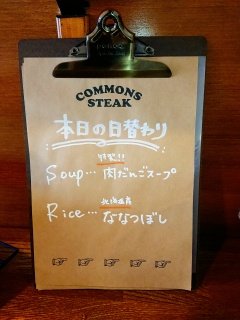 COMMONS
STEAK
本日の日替わり
特製!!
Soup… 肉だんごスープ
北海道産
Rice… ななつぼし